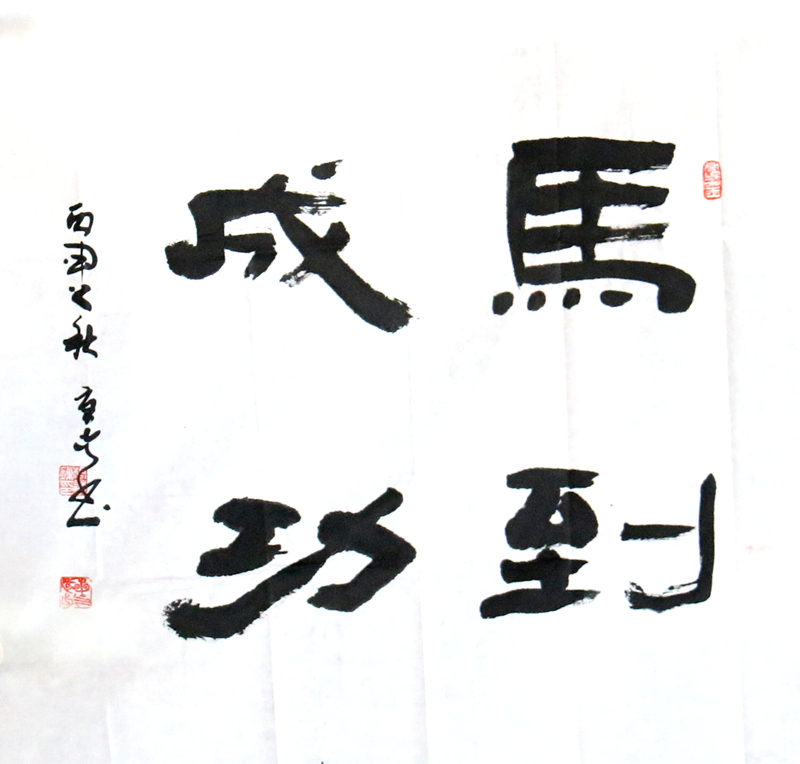 馬到
成功
丙申之秋
书